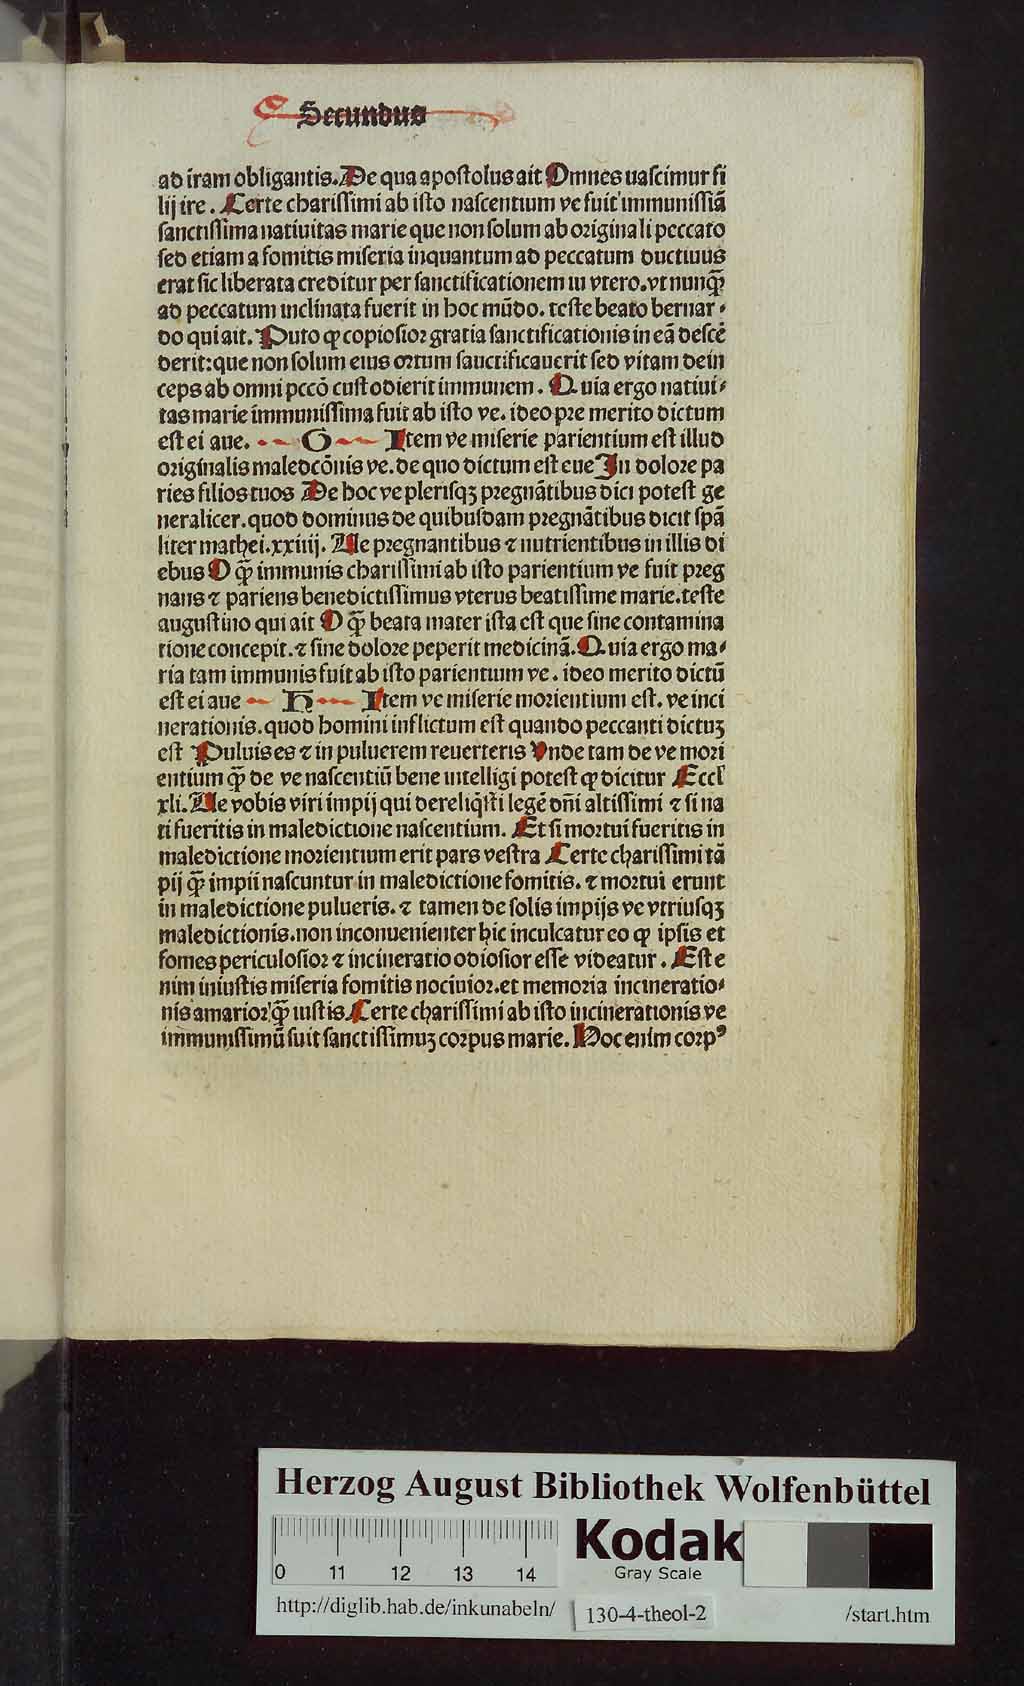 Secundus
ad iram obligantis. De qua apostolus ait Omnes nascimur fi
lij ire. Certe charissimi ab isto nascentium ve fuit immunissiā
sanctissima natiuitas marie que non solum ab originali peccato
sed etiam a fomitis miseria inquantum ad peccatum ductiuus
erat sic liberata creditur per sanctificationem in vtero. vt nunꝙ̄
ad peccatum inclinata fuerit in hoc mūdo. teste beato bernar⸗
do qui ait. Puto ꝙ copiosior gratia sanctificationis in eā descē
derit: que non solum eius ortum sanctificauerit sed vitam dein
ceps ab omni pccō custodierit immunem. Quia ergo natiui⸗
tas marie immunissima fuit ab isto ve. ideo pre merito dictum
est ei aue. G Item ve miserie parientium est illud
originalis maledcōnis ve. de quo dictum est eue In dolore pa
ries filios tuos De hoc ve plerisqꝫ pregnātibus dici potest ge
neraliter. quod dominus de quibusdam pregnātibus dicit spā
liter mathei. xxiiij. Ue pregnantibus ⁊ nutrientibus in illis di
ebus O ꝙ̄ immunis charissimi ab isto parientium ve fuit preg
nans ⁊ pariens benedictissimus vterus beatissime marie. teste
augustino qui ait O ꝙ̄ beata mater ista est que sine contamina
tione concepit. ⁊ sine dolore peperit medicinā. Quia ergo ma⸗
ria tam immunis fuit ab isto parientium ve. ideo merito dictū
est ei aue H Item ve miserie morientium est. ve inci
nerationis. quod homini inflictum est quando peccanti dictuꝫ
est Puluis es ⁊ in puluerem reuerteris Unde tam de ve mori
entium ꝙ̄ de ve nascentiū bene intelligi potest ꝙ dicitur Eccl'
xli. Ue vobis viri impij qui dereliq̄sti legē dn̄i altissimi ⁊ si na
ti fueritis in maledictione nascentium. Et si mortui fueritis in
maledictione morientium erit pars vestra Certe charissimi tā
pij ꝙ̄ impii nascuntur in maledictione fomitis. ⁊ mortui erunt
in maledictione pulueris. ⁊ tamen de solis impijs ve vtriusqꝫ
maledictionis. non inconuenienter hic inculcatur eo ꝙ ipsis et
fomes periculosior ⁊ incineratio odiosior esse videatur. Est e
nim iniustis miseria fomitis nociuior. et memoria incineratio⸗
nis amarior ꝙ̄ iustis. Certe charissimi ab isto incinerationis ve
immunissimū fuit sanctissimuꝫ corpus marie. Hoc enim corpꝰ
Herzog August Bibliothek Wolfenbüttel
0 11 12 13 14
Kodak
Gray Scale
http://diglib.hab.de/inkunabeln/ 130-4-theol-2 /start.htm